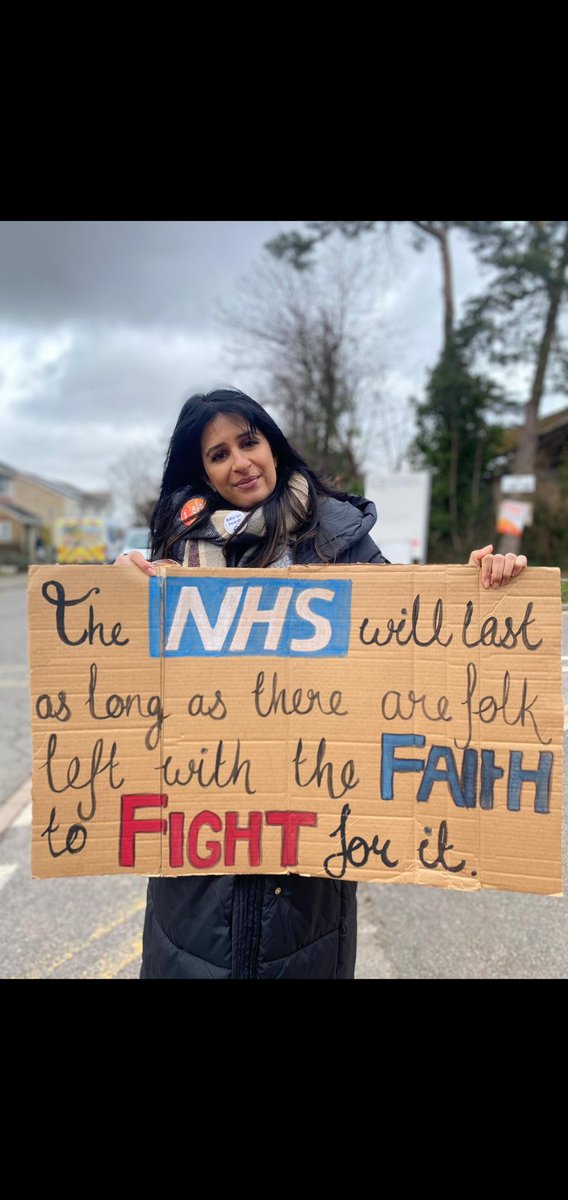 The NHS will last
as long as there are folk
left with the FAItH
to FIGHT for it.